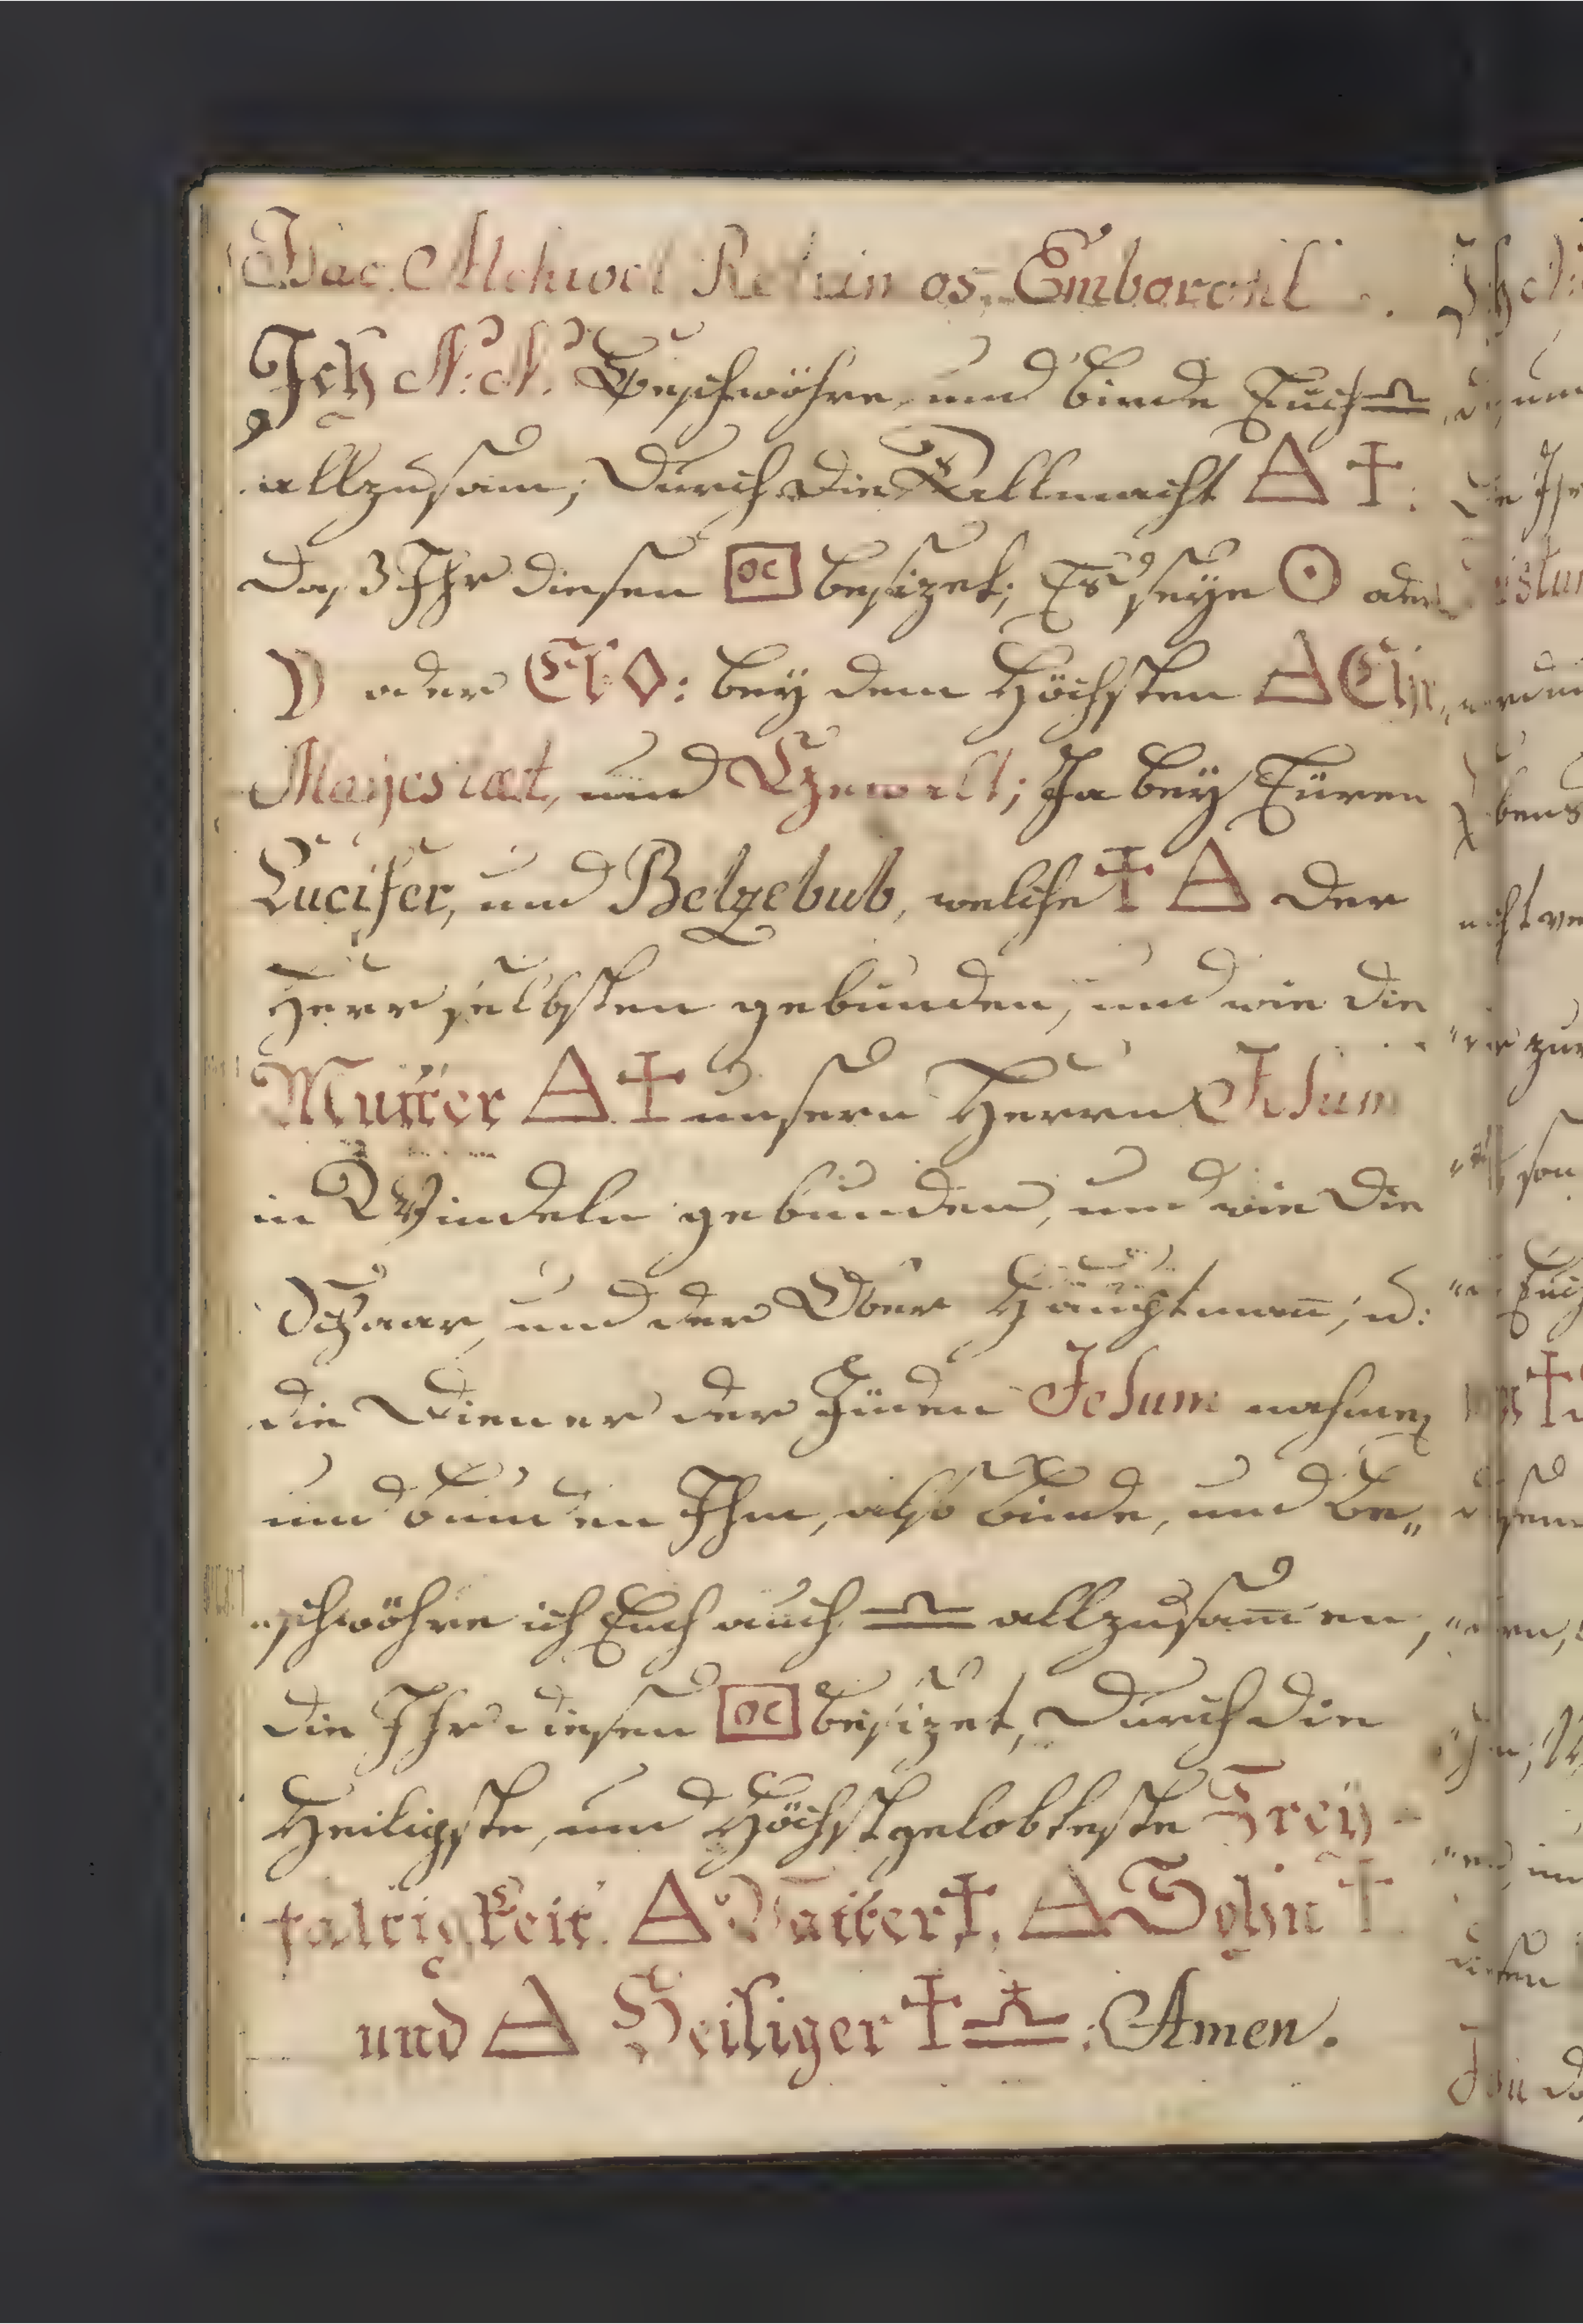 Embaronl
Ich N: N: Beschwöhre, und binde Euch ♎
allzusam, durch die Allmacht △ ✝:
daß Ihr diesen oc besizet; Es seye ☉ oder
☽ oder bey dem Höchsten △
Majestæt, und Gewalt; Ja bey Eüren
Lucifer, und Belzebub, welche ✝ △ der
Herr selbsten gebunden, und wie die
Mutter △ ✝ unsern Herrn Jesum
in Windeln gebunden, und wie die
Schaar, und der Ober Haubtman̄, u:
die Diener der Jüden Jesum nahmen
und bunden Ihm, also binde, und be„
„schwöhre ich Euch auch ♎ allzusam̄en,
die Ihr diesen oc besizet, durch die
Heiligste, und Höchstgelobteste Drey-
faltigkeit. △ Vatter ✝, △ Sohn ✝
und △ Heiliger ✝ ♎: Amen.